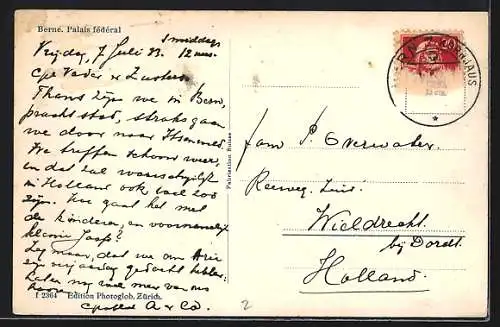 Berne. Palais fédéral
's middags
Vrijdag, 7 Juli 23. 12 uur.
Vader & Zusters
Thans zijn we in Bern,
prachtstad, straks gaan
we door naar
We treffen schoon weer,
en dat zal waarschijnlijk
in Holland ook wel zoo
zijn. Hoe gaat het met
de kinderen, en voornamelijk
kleine Jaap?
Zeg maar, dat we om Arie
zijn verjaardag gedacht hebben.
Later nog wel meer van ons
hooren A & Co.
f 2364 Edition Photoglob. Zürich.
Fabrication Suisse
BERN
Fam P. Overwater.
Reeweg Zuid.
Wieldrecht.
bij Dordt.
Holland.
2